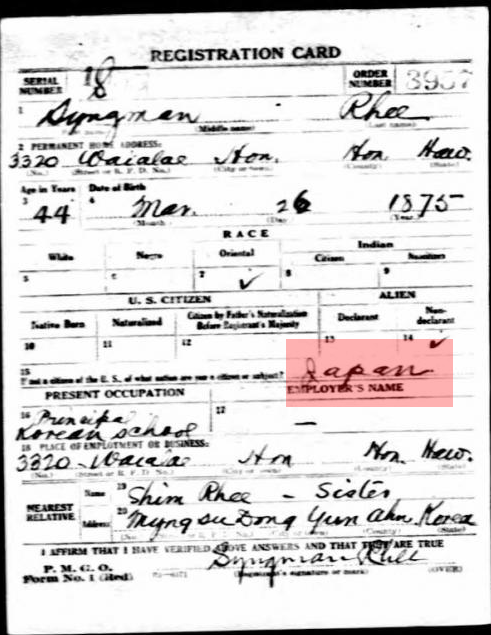 REGISTRATION CARD
SERIAL NUMBER 18 ORDER NUMBER 3957
1 Syngman Rhee
(Middle name) (Last name)
2 PERMANENT HOME ADDRESS:
3320 Waialae Hon. Hon Haw.
(No.) (Street or R. F. D. No.) (City or town) (County) (State)
Age in Years Date of Birth
3 44 4 Mar. 26 1875
(Month) (Day) (Year)
RACE
White Negro Oriental Indian
Citizen Noncitizen
5 6 7 ✓ 8 9
U. S. CITIZEN ALIEN
Native Born Naturalized Citizen by Father's Naturalization Before Registrant's Majority Declarant Non-declarant
10 11 12 13 14 ✓
15 If not a citizen of the U. S., of what nation are you a citizen or subject? Japan
PRESENT OCCUPATION EMPLOYER'S NAME
16 Principal 17 —
Korean School
18 PLACE OF EMPLOYMENT OR BUSINESS:
3320 Waialae Hon Hon. Haw.
(No.) (Street or R. F. D. No.) (City or town) (County) (State)
NEAREST RELATIVE Name 19 Shim Rhee - Sister
Address 20 Myng Su Dong Yun Ahn, Korea
I AFFIRM THAT I HAVE VERIFIED ABOVE ANSWERS AND THAT THEY ARE TRUE
P. M. G. O. Syngman Rhee
Form No. 1 (Red) (Registrant's signature or mark) (OVER)